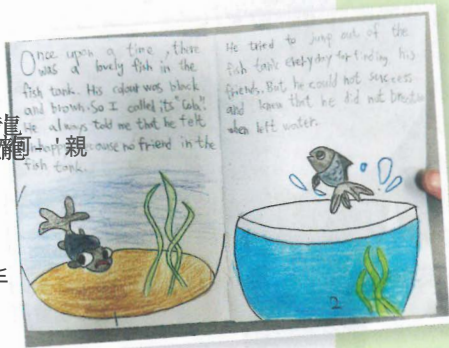 Once upon a time, there
was a lovely fish in the
fish tank. His colour was black
and brown. So I called its
He always told me that he felt
because no friend in the
fish tank.
He tried to jump out of the
fish tank everyday for finding his
friends. But he could not success
and knew that he did not
when left water.
2
龍
何 - ' 親